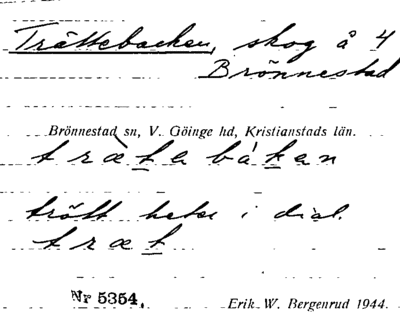 Trättebacken, skog å 4
Brönnestad
Brönnestad sn, V. Göinge hd, Kristianstads län.
trætabákan
trött heter i dial.
træt
Nr 5354.
Erik W. Bergenrud 1944.